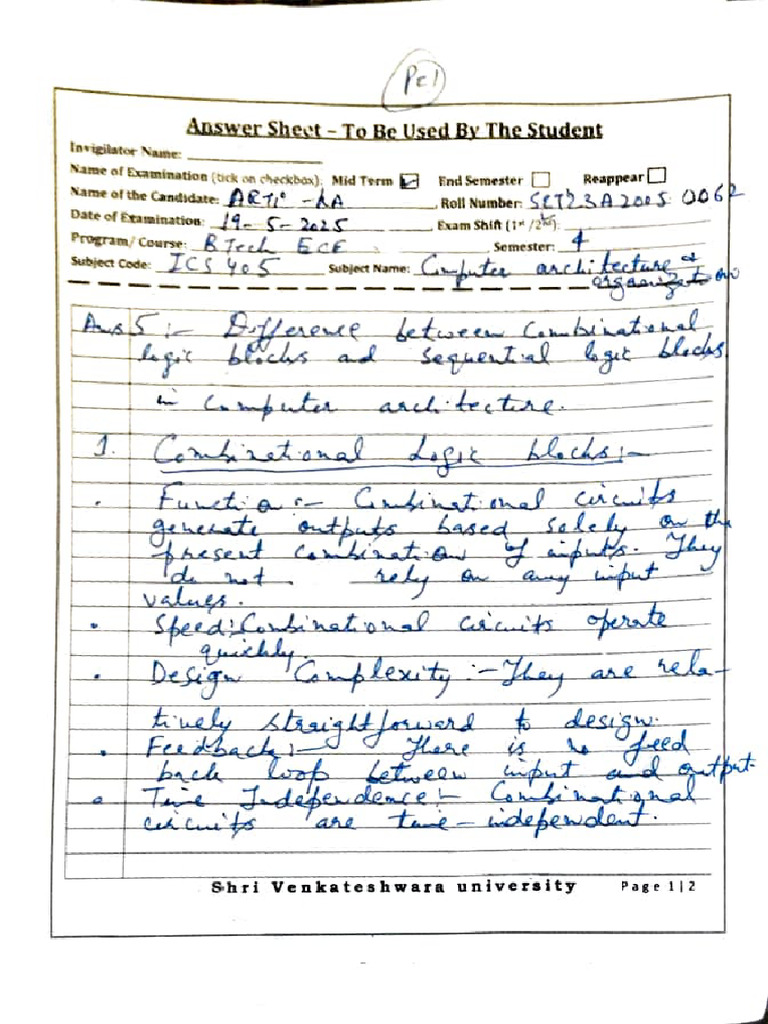 Pg 1
Answer Sheet – To Be Used By The Student
Invigilator Name:
Name of Examination (tick on checkbox): Mid Term ☑ End Semester ☐ Reappear ☐
Name of the Candidate: ARTI - Roll Number: SET23A2005 0062
Date of Examination: 19-5-2025 Exam Shift (1st /2nd):
Program/ Course: B Tech ECE Semester: 4
Subject Code: ICS 405 Subject Name: Computer architecture &
organization
Ans 5 :- Difference between Combinational
logic blocks and sequential logic blocks
in computer architecture.
1. Combinational Logic blocks :-
• Function :- Combinational circuits
generate outputs based solely on the
present combination of inputs. They
do not rely on any input
values.
• Speed: Combinational circuits operate
quickly.
• Design Complexity :- They are rela-
tively straightforward to design.
• Feedback :- There is no feed
back loop between input and output.
• Time Independence :- Combinational
circuits are time-independent.
Shri Venkateshwara university Page 1|2